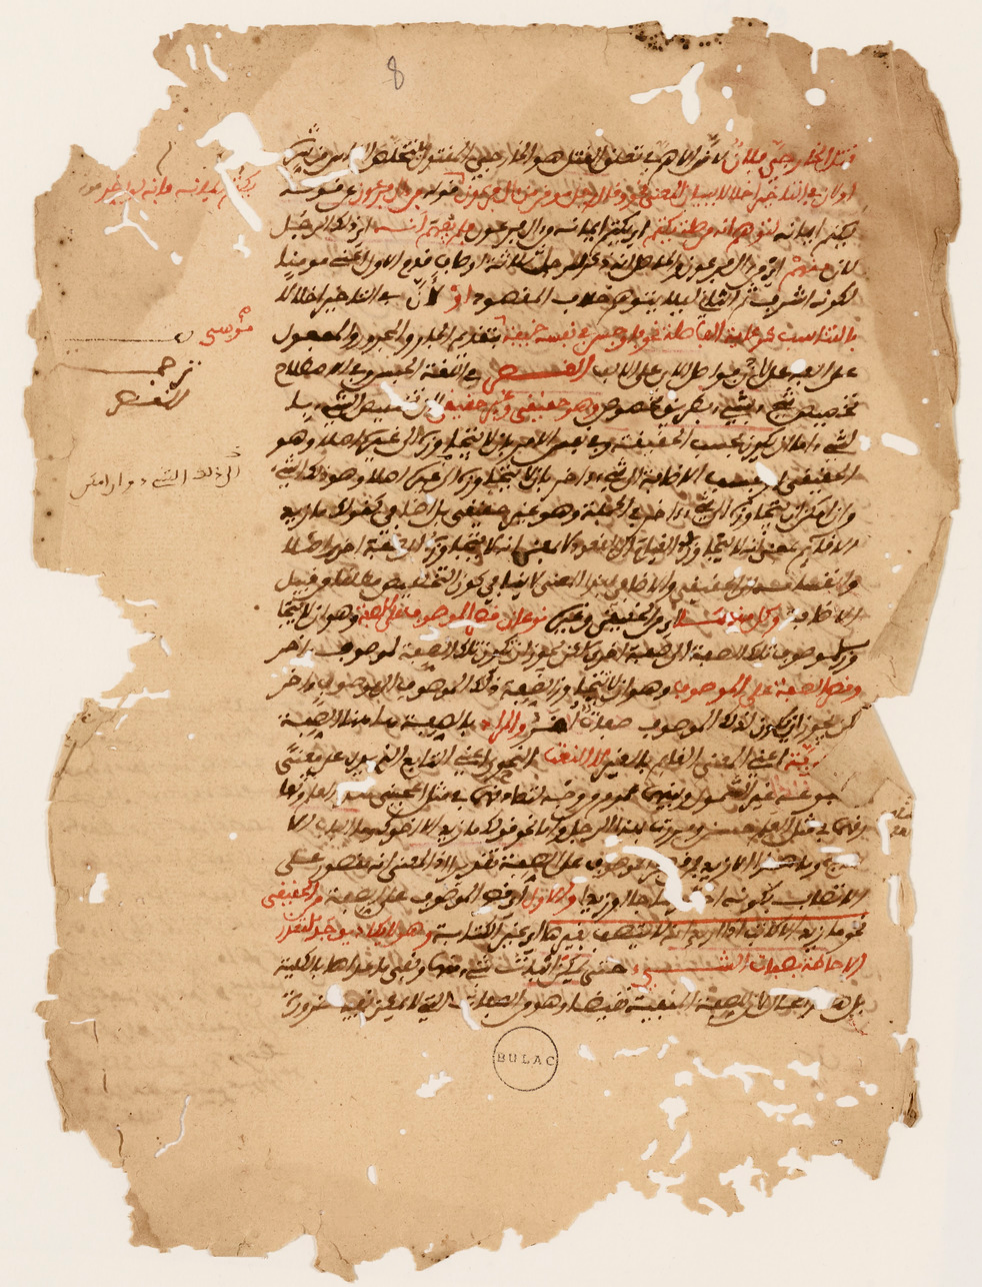 8
قتل الخارجي فلان لان الاهم في تعلق القتل هو الخارجي المقتول ليتخلص الناس من شره
او لان في التاخير اخلالا ببيان المعنى نحو وقال رجل مومن من ال فرعون قوله من ال فرعون عن قوله
يكتم ايمانه فانه لو اخر
يكتم ايمانه لتوهم انه من صلة يكتم اي يكتم ايمانه من ال فرعون فلم يفهم انه اي ذلك الرجل
كان منهم اي من ال فرعون والحاصل انه ذكر للرجل ثلاثة اوصاف قدم الاول اعني مومن
لكونه اشرف ثم الثاني ليلا يتوهم خلاف المقصود او لان في التاخير اخلالا
بالتناسب كرعاية الفاصلة نحو فاوجس في نفسه خيفة بتقديم الجار والمجرور والمفعول
موسى
على الفاعل لان فواصل الاي على الالف القصر في اللغة الحبس وفي الاصطلاح
القصر
تخصيص شيء بشيء بطريق مخصوص وهو حقيقي وغير حقيقي لان تخصيص الشيء
لشيء اما ان يكون بحسب الحقيقة وفي نفس الامر بان لا يتجاوزه الى غيره اصلا وهو
الحقيقي او بحسب الاضافة الى شيء اخر بان لا يتجاوزه الى غيره اصلا وهو ذلك الشيء
الى ذلك الشيء وان امكن
وان امكن ان يتجاوزه الى شيء اخر في الجملة وهو غير حقيقي بل اضافي كقولك ما زيد
الا قائم بمعنى انه لا يتجاوز القيام الى القعود لا بمعنى انه لا يتجاوزه الى صفة اخرى اصلا
وانقسامه الى الحقيقي والاضافي بهذا المعنى لا ينافي كون التخصيص مطلقا من قبيل
الاضافات وكل منهما اي من الحقيقي وغيره نوعان قصر الموصوف على الصفة وهو ان لا يتجا
وز الموصوف تلك الصفة الى صفة اخرى لكن يجوز ان تكون تلك الصفة لموصوف اخر
وقصر الصفة على الموصوف وهو ان لا يتجاوز الصفة ذلك الموصوف الى موصوف اخر
لكن يجوز ان يكون لذلك الموصوف صفات اخر والمراد بالصفة هاهنا الصفة
اعني المعنى القائم بالغير لا النعت النحوي اعني التابع الذي يدل على معنى
متبوعه غير الشمول وبينهما عموم من وجه لتصادقهما في مثل اعجبني هذا العلم وتفا
رقهما في مثل العلم حسن ومررت بهذا الرجل واما نحو قولك ما زيد الا اخوك وما الباب الا
ساج وما هذا الا زيد فمن قصر الموصوف على الصفة تقديرا اذ المعنى انه مقصور على
الاتصاف بكونه اخا او ساجا او زيدا والاول اي قصر الموصوف على الصفة من الحقيقي
نحو ما زيد الا كاتب اذا اريد انه لا يتصف بغيرها اي غير الكتابة وهو لا يكاد يوجد لتعذر
الاحاطة بصفات الشيء حتى يمكن اثبات شيء منها ونفي ما عداها بالكلية
بل هذا محال لان للصفة المنفية نقيضا وهو من الصفات التي لا يمكن نفيها ضرورة
BULAC